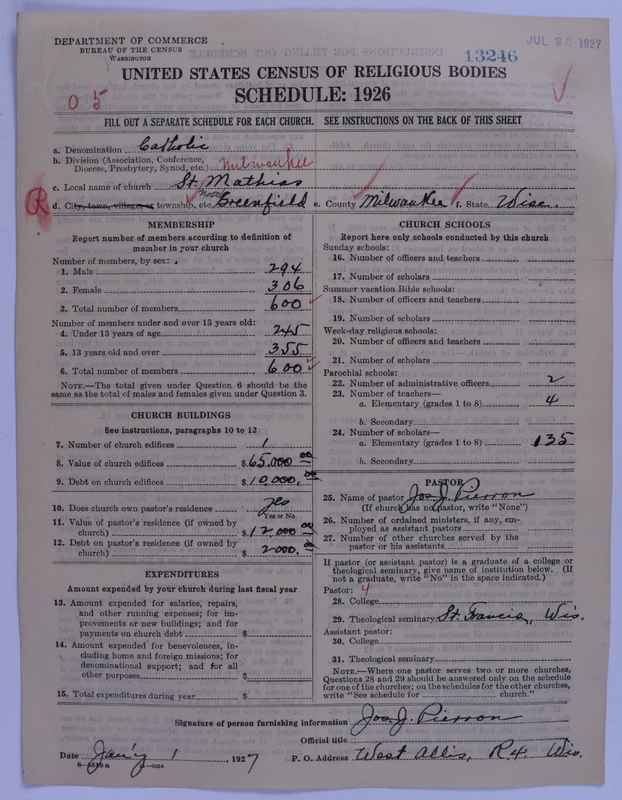 DEPARTMENT OF COMMERCE
BUREAU OF THE CENSUS
WASHINGTON
13246
JUL 25 1927
UNITED STATES CENSUS OF RELIGIOUS BODIES
SCHEDULE: 1926
0 5
FILL OUT A SEPARATE SCHEDULE FOR EACH CHURCH. SEE INSTRUCTIONS ON THE BACK OF THIS SHEET
a. Denomination Catholic
b. Division (Association, Conference,
Diocese, Presbytery, Synod, etc.) Milwaukee
c. Local name of church St. Mathias
R d. City, town, village, or township, etc. near Greenfield e. County Milwaukee f. State Wisc.
MEMBERSHIP
Report number of members according to definition of
member in your church
Number of members, by sex:
1. Male 294
2. Female 306
3. Total number of members 600
Number of members under and over 13 years old:
4. Under 13 years of age 245
5. 13 years old and over 355
6. Total number of members 600
NOTE.—The total given under Question 6 should be the
same as the total of males and females given under Question 3.
CHURCH BUILDINGS
See instructions, paragraphs 10 to 12
7. Number of church edifices 1
8. Value of church edifices $65,000 00
9. Debt on church edifices $10,000. 00
10. Does church own pastor's residence yes
Yes or No
11. Value of pastor's residence (if owned by
church) $12.000 00
12. Debt on pastor's residence (if owned by
church) $2000. 00
EXPENDITURES
Amount expended by your church during last fiscal year
13. Amount expended for salaries, repairs,
and other running expenses; for im-
provements or new buildings; and for
payments on church debt $
14. Amount expended for benevolences, in-
cluding home and foreign missions; for
denominational support; and for all
other purposes $
15. Total expenditures during year $
CHURCH SCHOOLS
Report here only schools conducted by this church
Sunday schools:
16. Number of officers and teachers
17. Number of scholars
Summer vacation Bible schools:
18. Number of officers and teachers
19. Number of scholars
Week-day religious schools:
20. Number of officers and teachers
21. Number of scholars
Parochial schools:
22. Number of administrative officers 2
23. Number of teachers—
a. Elementary (grades 1 to 8) 4
b. Secondary
24. Number of scholars—
a. Elementary (grades 1 to 8) 135
b. Secondary
PASTOR
25. Name of pastor Jos. J. Pierron
(If church has no pastor, write "None")
26. Number of ordained ministers, if any, em-
ployed as assistant pastors
27. Number of other churches served by the
pastor or his assistants
If pastor (or assistant pastor) is a graduate of a college or
theological seminary, give name of institution below. (If
not a graduate, write "No" in the space indicated.)
Pastor: 4
28. College
29. Theological seminary St. Francis, Wis.
Assistant pastor:
30. College
31. Theological seminary
NOTE.—Where one pastor serves two or more churches,
Questions 28 and 29 should be answered only on the schedule
for one of the churches; on the schedules for the other churches,
write "See schedule for church."
Signature of person furnishing information Jos. J. Pierron
Official title
Date Jan'y 1, 1927 P. O. Address West Allis, R4. Wis.